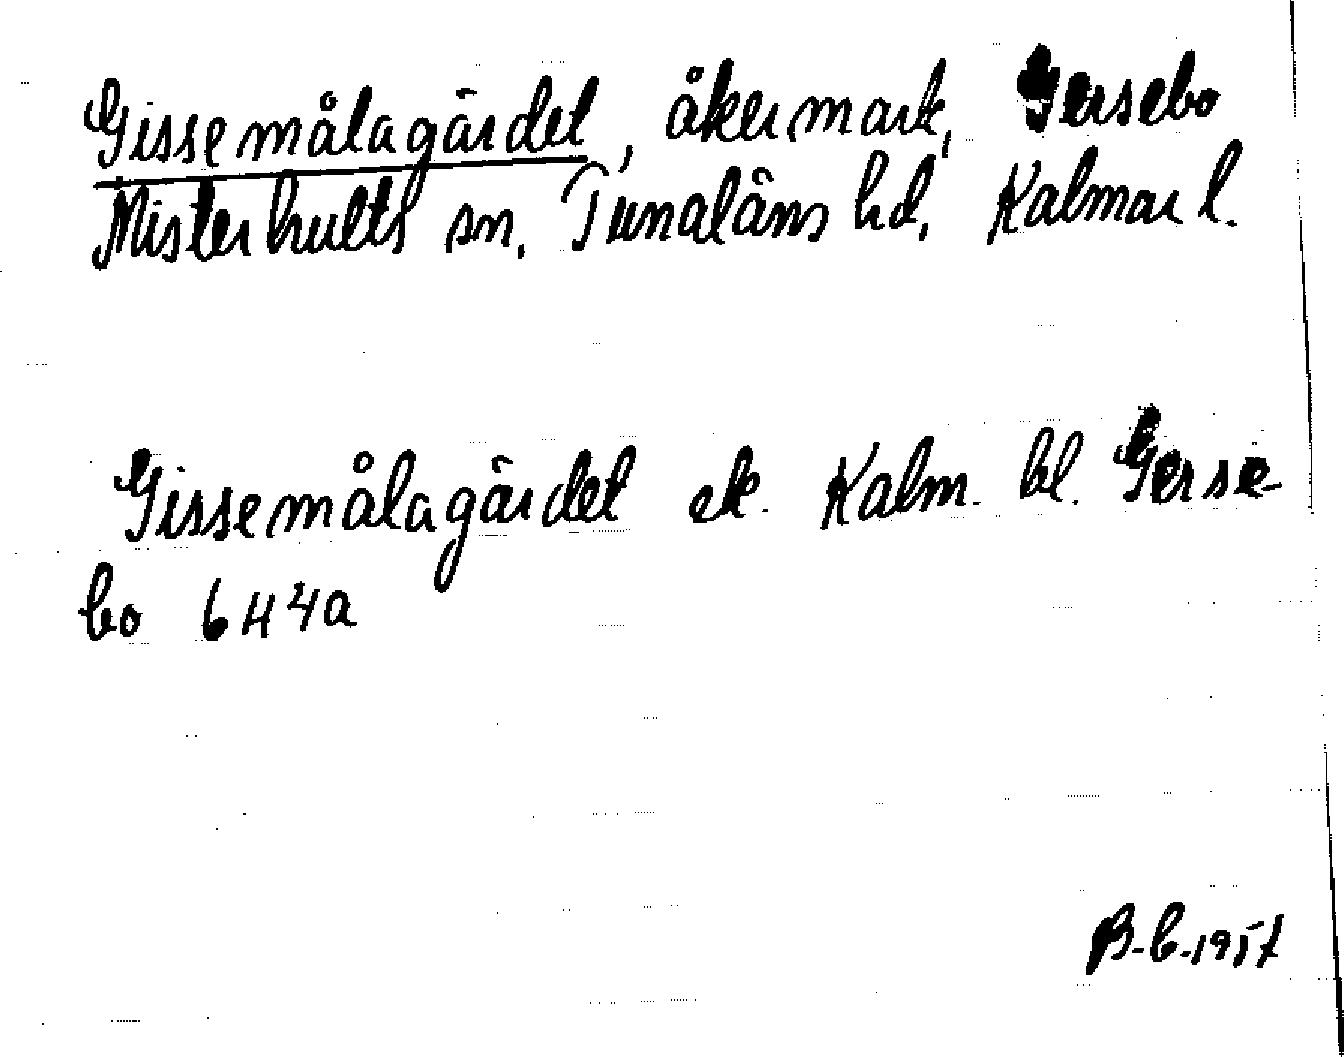 Gissemålagärdet, åkermark, Gersebo
Misterhults sn. Tunaläns hd. Kalmar l.
Gissemålagärdet ek. Kalm. bl. Gerse-
bo 6H4a
B-b-1957